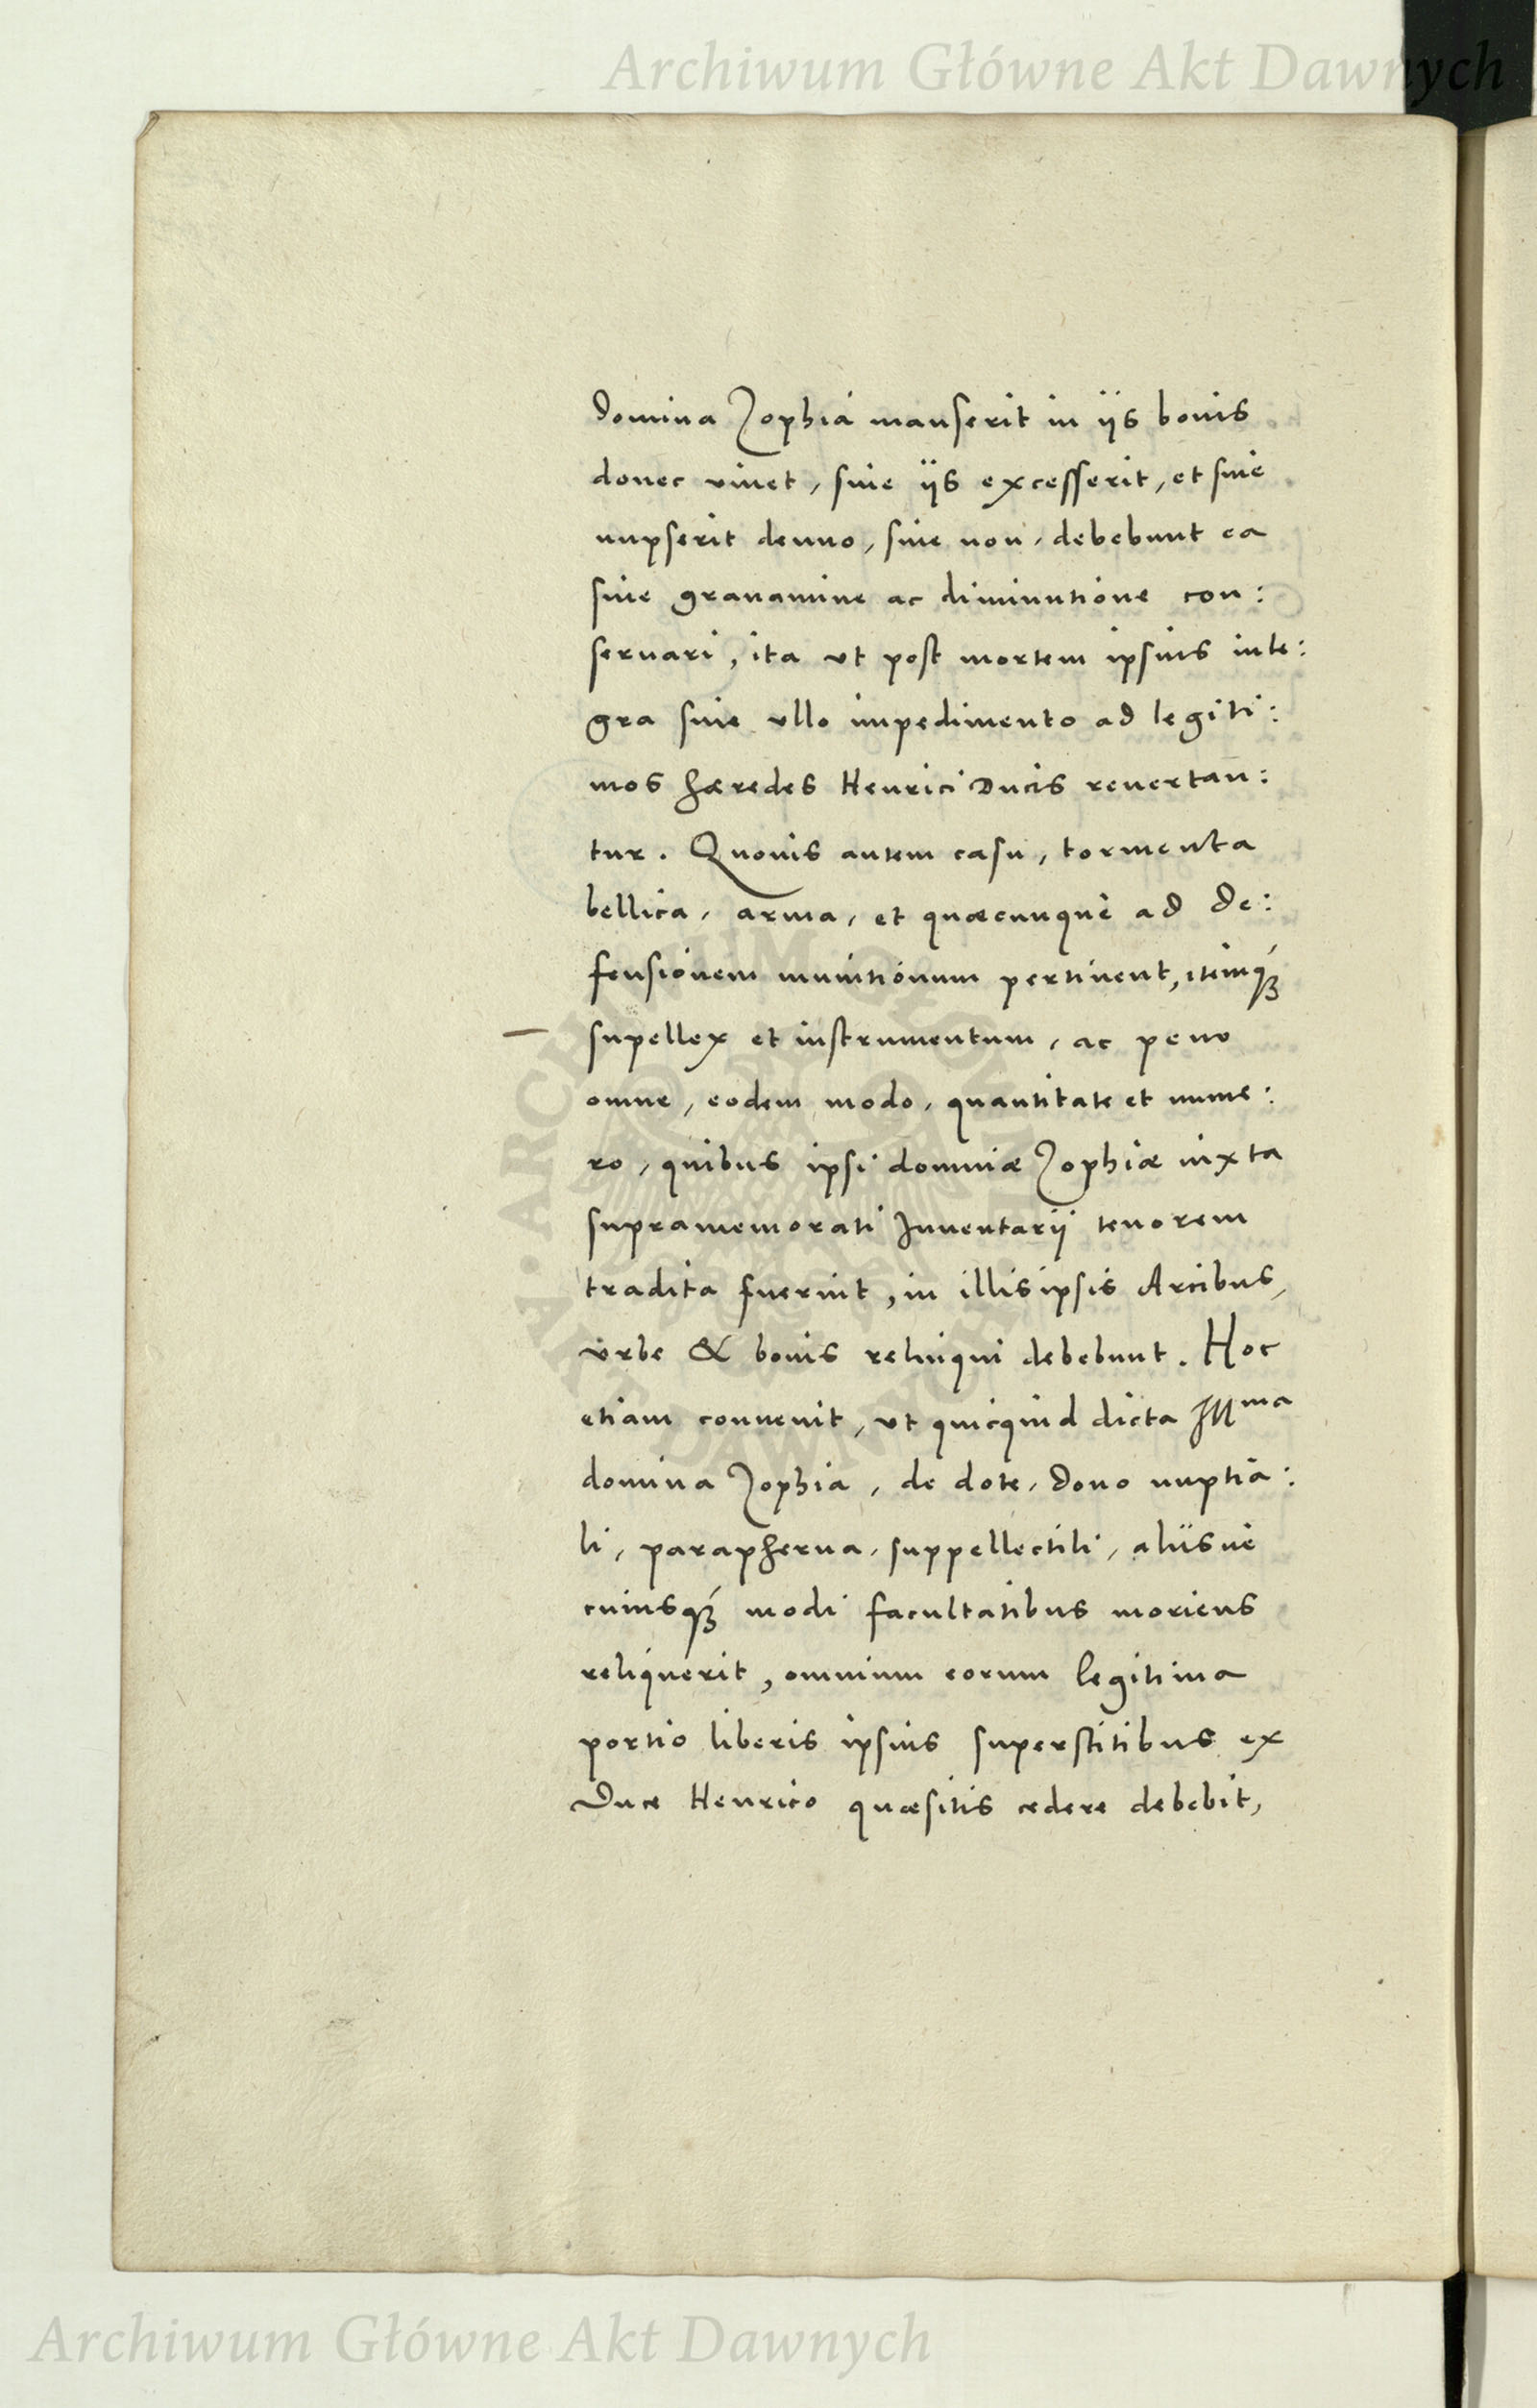 Archiwum Główne Akt Dawnych
domina Zophia manserit in ijs bonis
donec viuet, siue ijs excesserit, et siue
nupserit denuo, siue non, debebunt ea
sine grauamine ac diminutione con:
seruari, ita vt post mortem ipsius inte:
gra sine vllo impedimento ad legiti:
mos hæredes Henrici Ducis reuertan:
tur. Quouis autem casu, tormenta
bellica, arma, et quæcunque ad de:
fensionem munitionum pertinent, itemq́ꝫ
supellex et instrumentum, ac peno
omne, eodem modo, quantitate et nume:
ro, quibus ipsi dominæ Zophiæ iuxta
supramemorati Inuentarij tenorem
tradita fuerint, in illis ipsis Arcibus,
vrbe & bonis relinqui debebunt. Hoc
etiam conuenit, vt quicquid dicta Illma
domina Zophia, de dote, dono nuptia:
li, parapherna, suppellectili, alijsue
cuiusq́ꝫ modi facultatibus moriens
reliquerit, omnium eorum legitima
portio liberis ipsius superstitibus ex
Duce Henrico quæsitis cedere debebit,
ARCHIWUM GŁÓWNE AKT DAWNYCH
Archiwum Główne Akt Dawnych